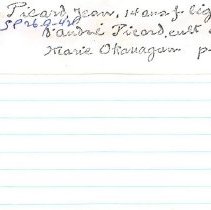 Picard, Jean, 14 ans f. lég
SP26-9-42
d'André Picard, cult
Marie Okanagan p